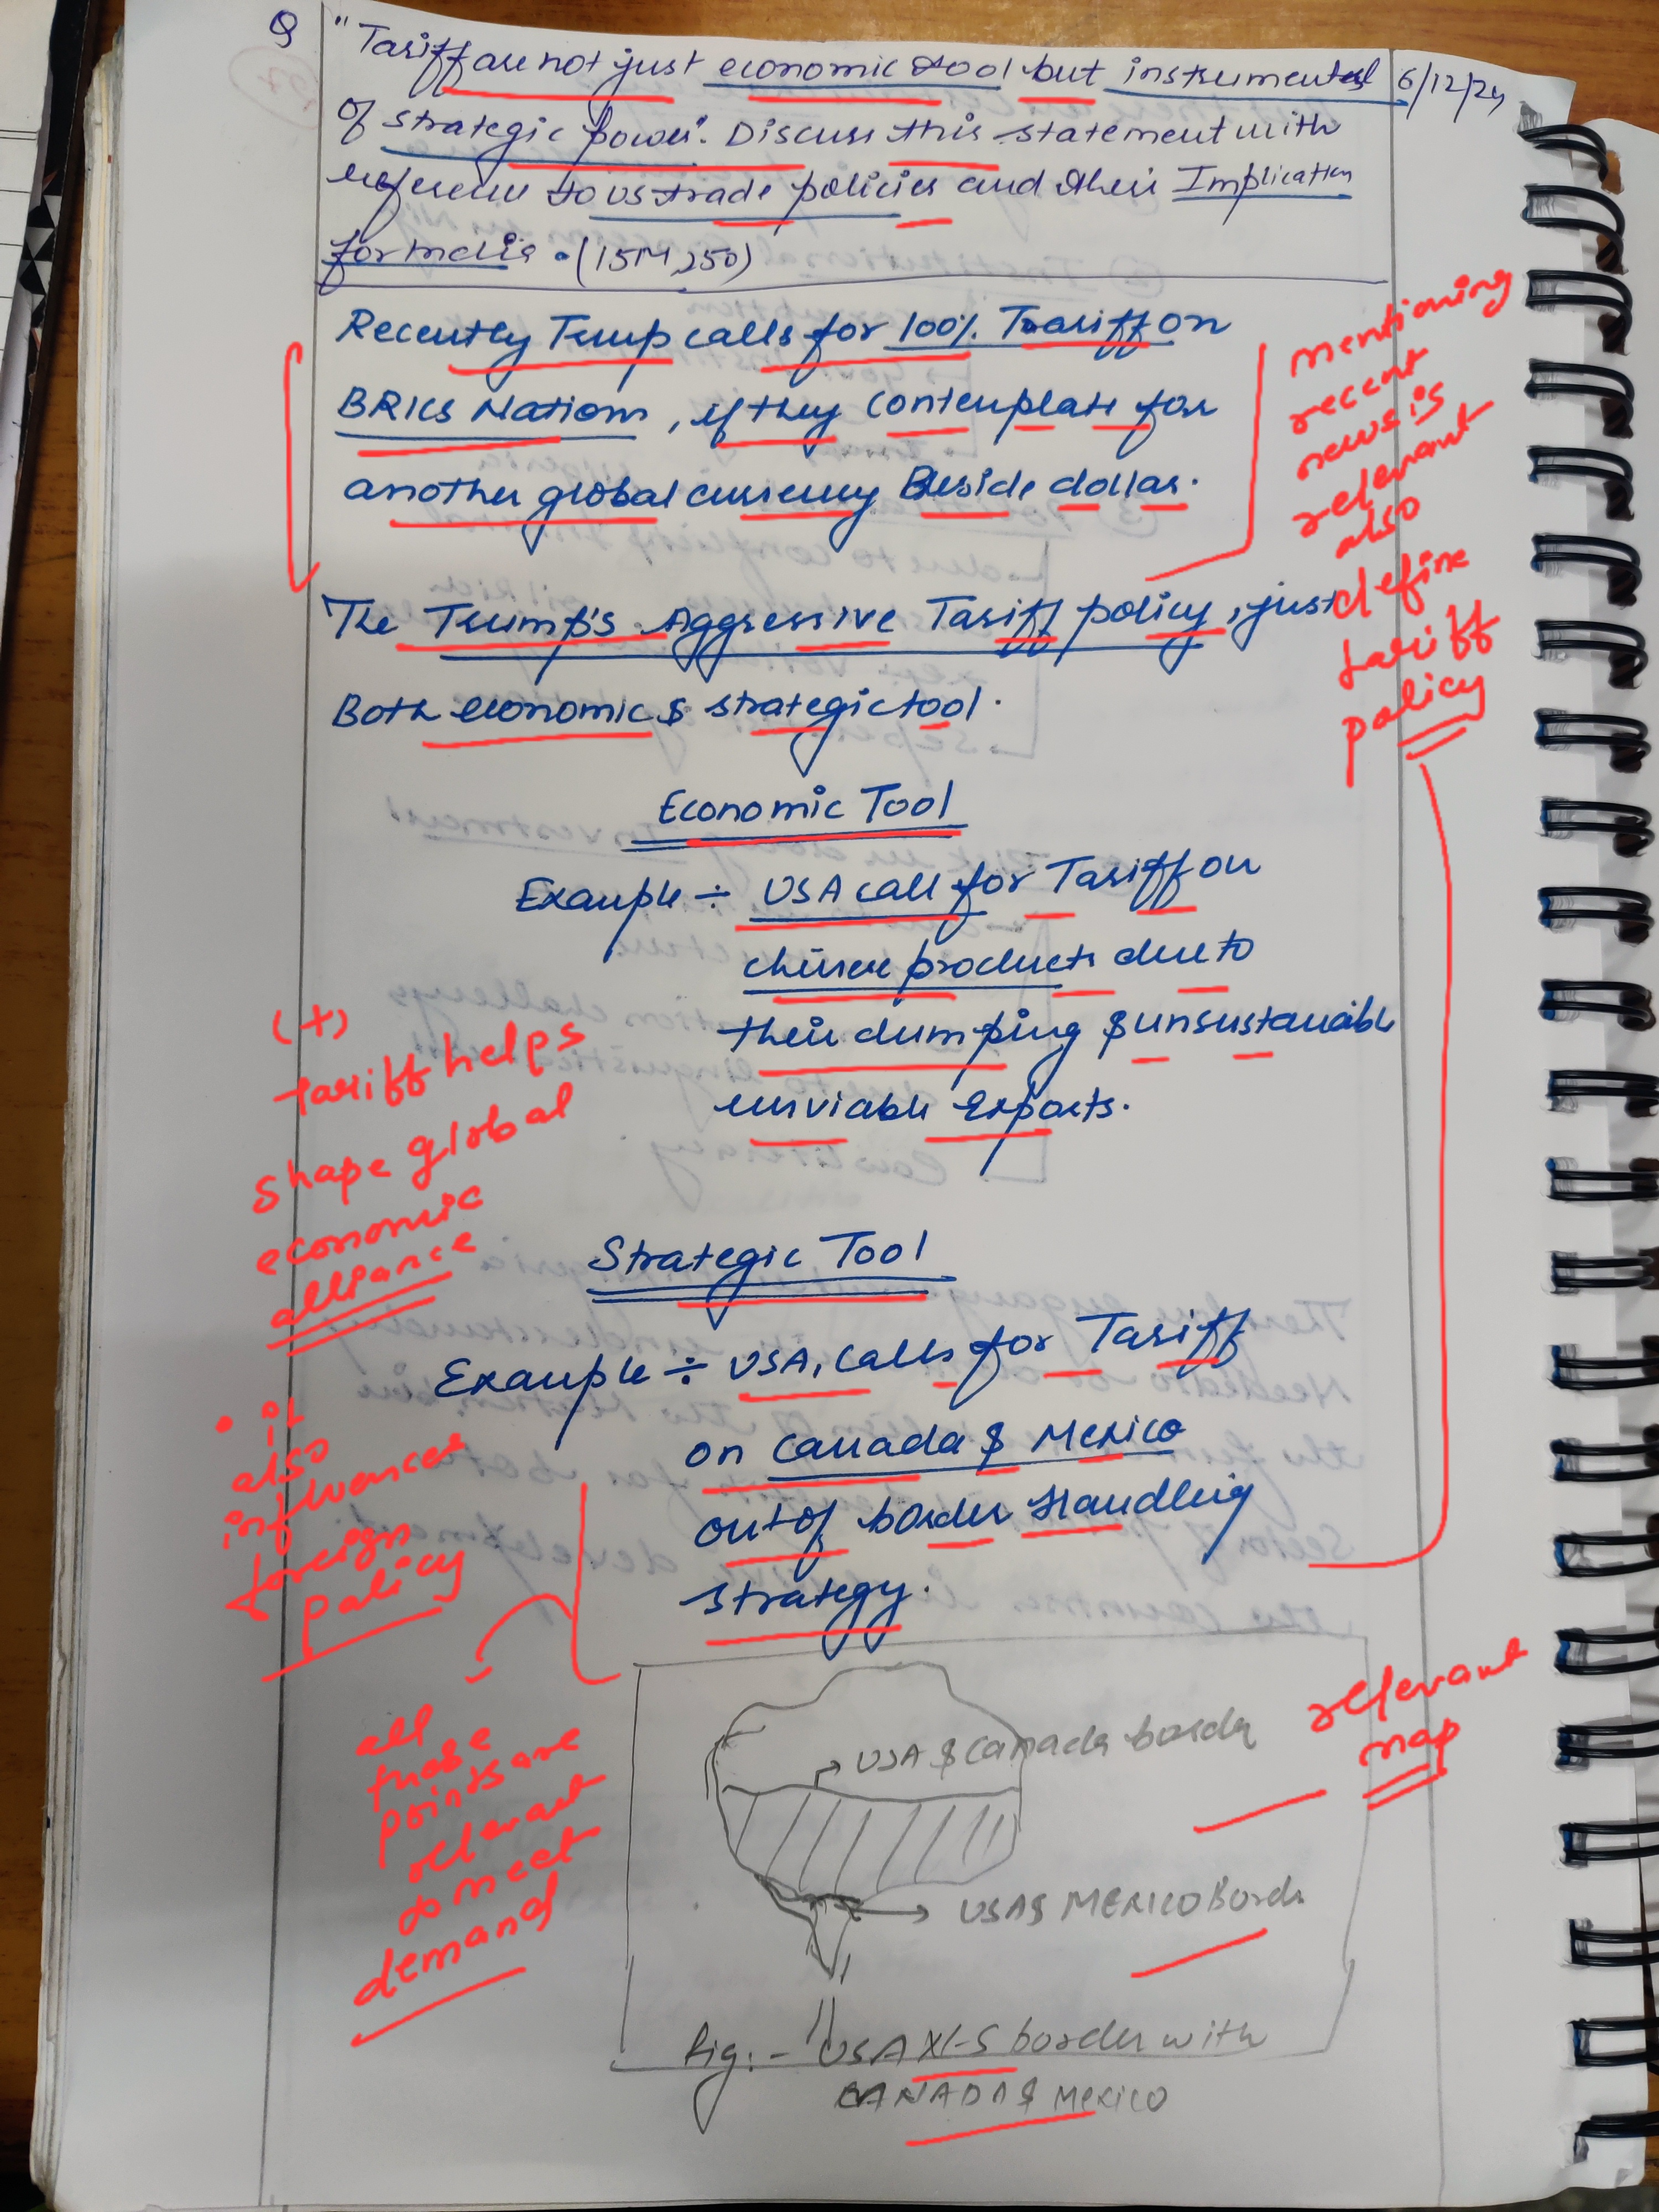 Q "Tariff are not just economic tool but instruments 6/12/24
of strategic power". Discuss this statement with
reference to US trade policies and their Implication
for India. (15M, 250)
Recently Trump calls for 100% Tariff on
BRICS Nations, if they contemplate for
another global currency Beside dollar.
mentioning
recent
news is
relevant
also
define
tariff
policy
The Trump's Aggressive Tariff policy, just
Both economic & strategic tool.
Economic Tool
Example ÷ USA call for Tariff on
chinese products due to
their dumping & unsustainable
unviable Exports.
(+)
tariff helps
shape global
economic
alliance
Strategic Tool
Example ÷ USA, calls for Tariff
on Canada & Mexico
out of border Handling
strategy.
• it
also
influences
foreign
policy
all
these
points are
relevant
to meet
demand
→ USA & Canada border
relevant
map
→ USA & MEXICO Border
fig:- USA border with
CANADA & MEXICO